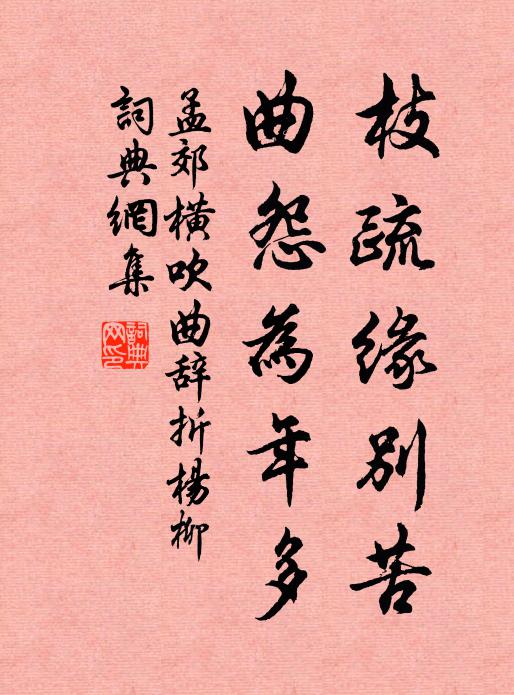 枝疏緣別苦
曲怨為年多
孟郊橫吹曲辞折楊柳
詞典網集
詞典网印